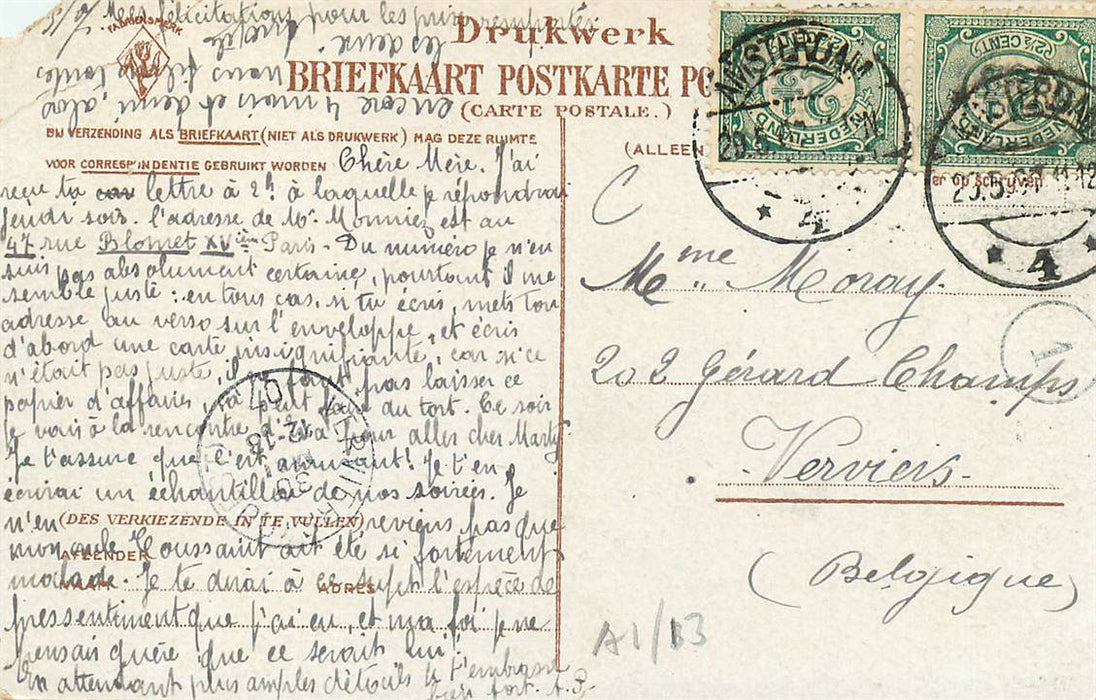 Mes félicitations pour les prix remportés
les deux.
encore 4 mois et demi,
FABRIEKSMERK
Drukwerk
BRIEFKAART POSTKARTE PO
(CARTE POSTALE.)
BIJ VERZENDING ALS BRIEFKAART (NIET ALS DRUKWERK) MAG DEZE RUIMTE
VOOR CORRESPONDENTIE GEBRUIKT WORDEN
(ALLEEN
er op schrijven
Chère Mère. J'ai
reçu ta lettre à 2h à laquelle je répondrai
jeudi soir. l'adresse de Mr. Monnier est au
47 rue Blomet XVième Paris - Du numéro je n'en
suis pas absolument certaine, pourtant il me
semble juste : en tous cas, si tu écris, mets ton
adresse au verso sur l'enveloppe, et écris
d'abord une carte insignifiante, car si ce
n'était pas juste, il ne faut pas laisser ce
papier d'affaires, ça peut faire du tort. Ce soir
je vais à la rencontre pour aller chez Marty
Je t'assure que c'est amusant! Je t'en
écrirai un échantillon de nos soirées. Je
n'en reviens pas que
(DES VERKIEZENDE IN TE VULLEN)
mon oncle Toussaint ait été si fortement
AFZENDER
malade. Je te dirai à ce sujet l'espèce de
NAAM ADRES
pressentiment que j'ai eu, et ma foi je ne
pensais guère que ce serait lui.
En attendant plus amples détails je t'embrasse
bien fort. A.P.
AMSTERDAM
4
AMSTERDAM
4
NEDERLAND
2½ CENT
NEDERLAND
2½ CENT
VERVIERS
12-13
30
07
1
Mme Moray.
202 Gérard Champs
Verviers.
(Belgique)
A1/B3